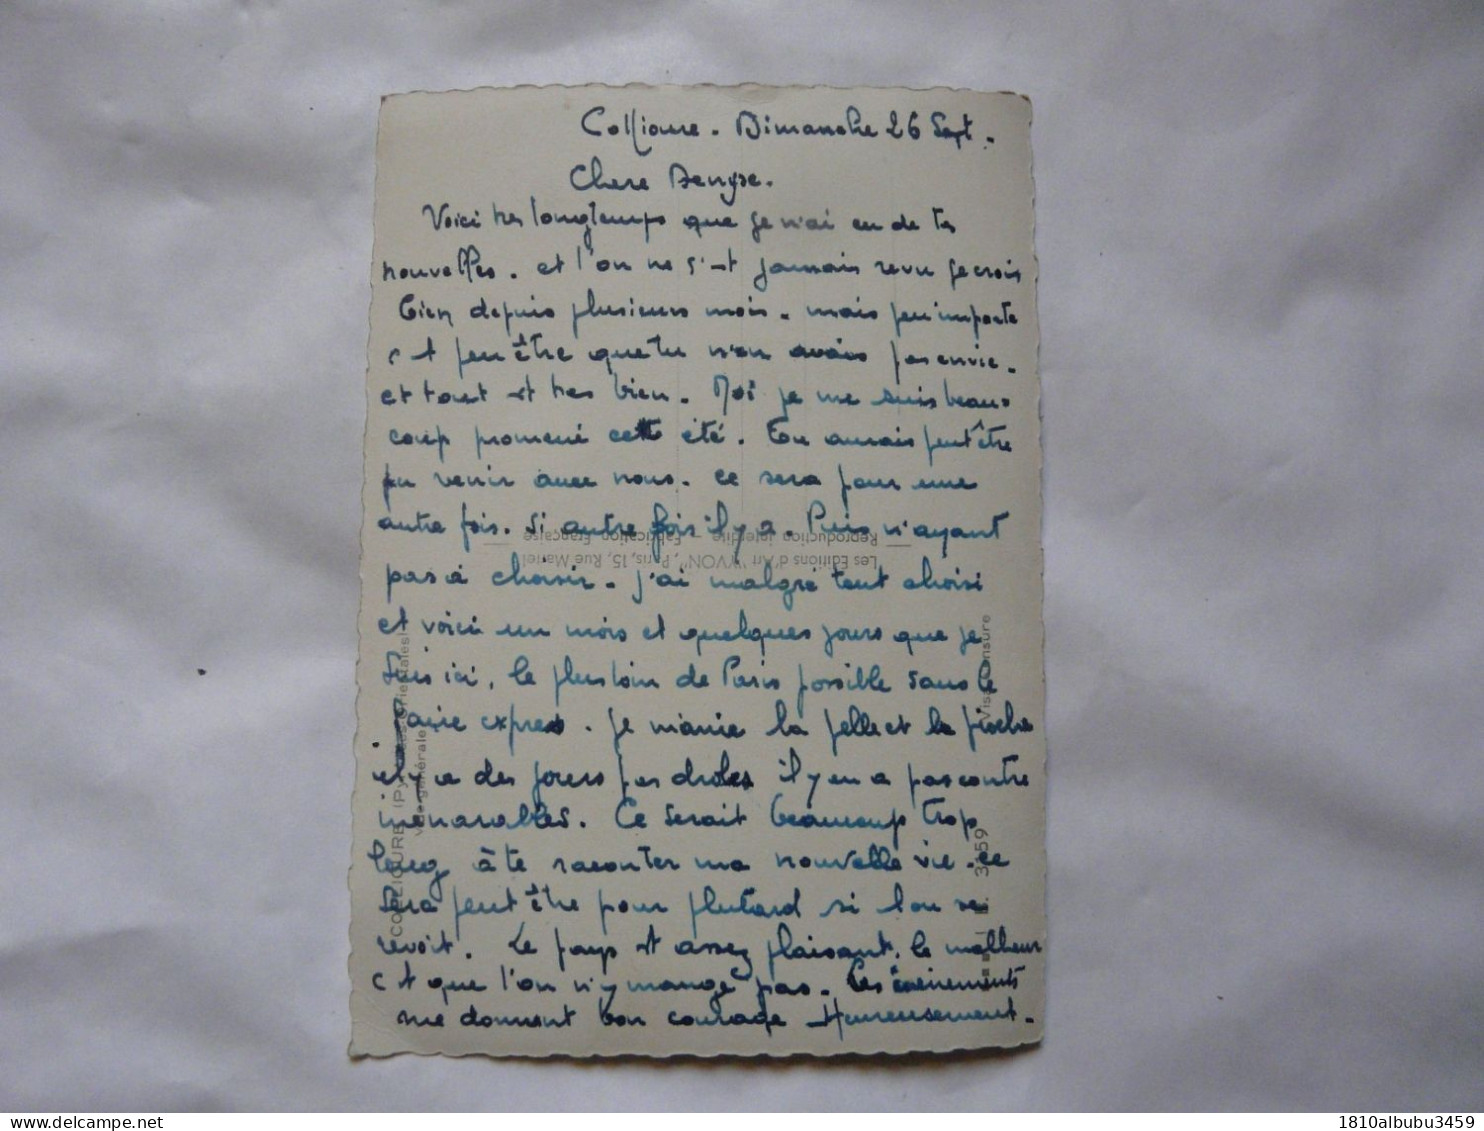 Collioure. Dimanche 26 Sept.
Chere Denyse.
Voici tres longtemps que je n'ai eu de tes
nouvelles. et l'on ne s'est jamais revu je crois
bien depuis plusieurs mois. mais peu importe
c'est peu être que tu n'en avais pas envie.
et tout est tres bien. Moi je me suis beau-
coup promené cett été. Tu aurais peut être
pu venir avec nous. ce sera pour une
autre fois. Si autre fois il y a. Puis n'ayant
pas à choisir. j'ai malgré tout choisi
et voici un mois et quelques jours que je
suis ici, le plus loin de Paris possible sans le
faire expres. je manie la pelle et la pioche
il y a des jours pas droles il y en a par contre
inénarables. Ce serait beaucoup trop
long à te raconter ma nouvelle vie. ce
sera peut être pour plutard si l'on se
revoit. Le pays est assez plaisant. le malheur
c'est que l'on n'y mange pas. Les évènements
me donnent bon courage Heureusement.
Les Editions d'Art "YVON", Paris, 15, Rue Martel
Reproduction interdite - Fabrication Française
COLLIOURE (Pyrénées-Orientales)
Vue générale
Visa Censure
3459
1810albubu3459